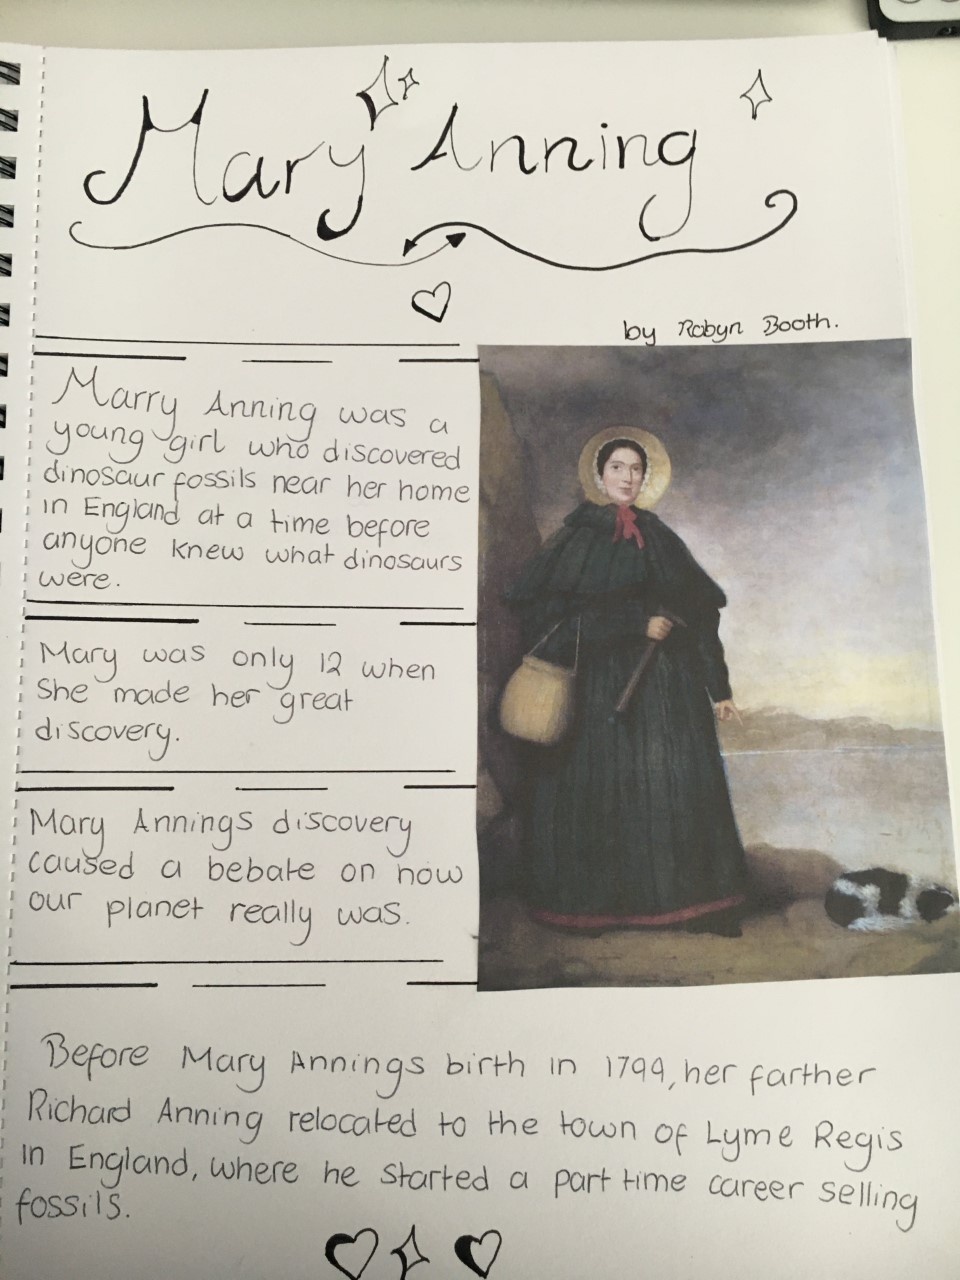 Mary Anning
by Robyn Booth.
Marry Anning was a
young girl who discovered
dinosaur fossils near her home
in England at a time before
anyone knew what dinosaurs
were.
Mary was only 12 when
She made her great
discovery.
Mary Annings discovery
caused a bebate on how
our planet really was.
Before Mary Annings birth in 1799, her farther
Richard Anning relocated to the town of Lyme Regis
in England, where he started a part time career selling
fossils.